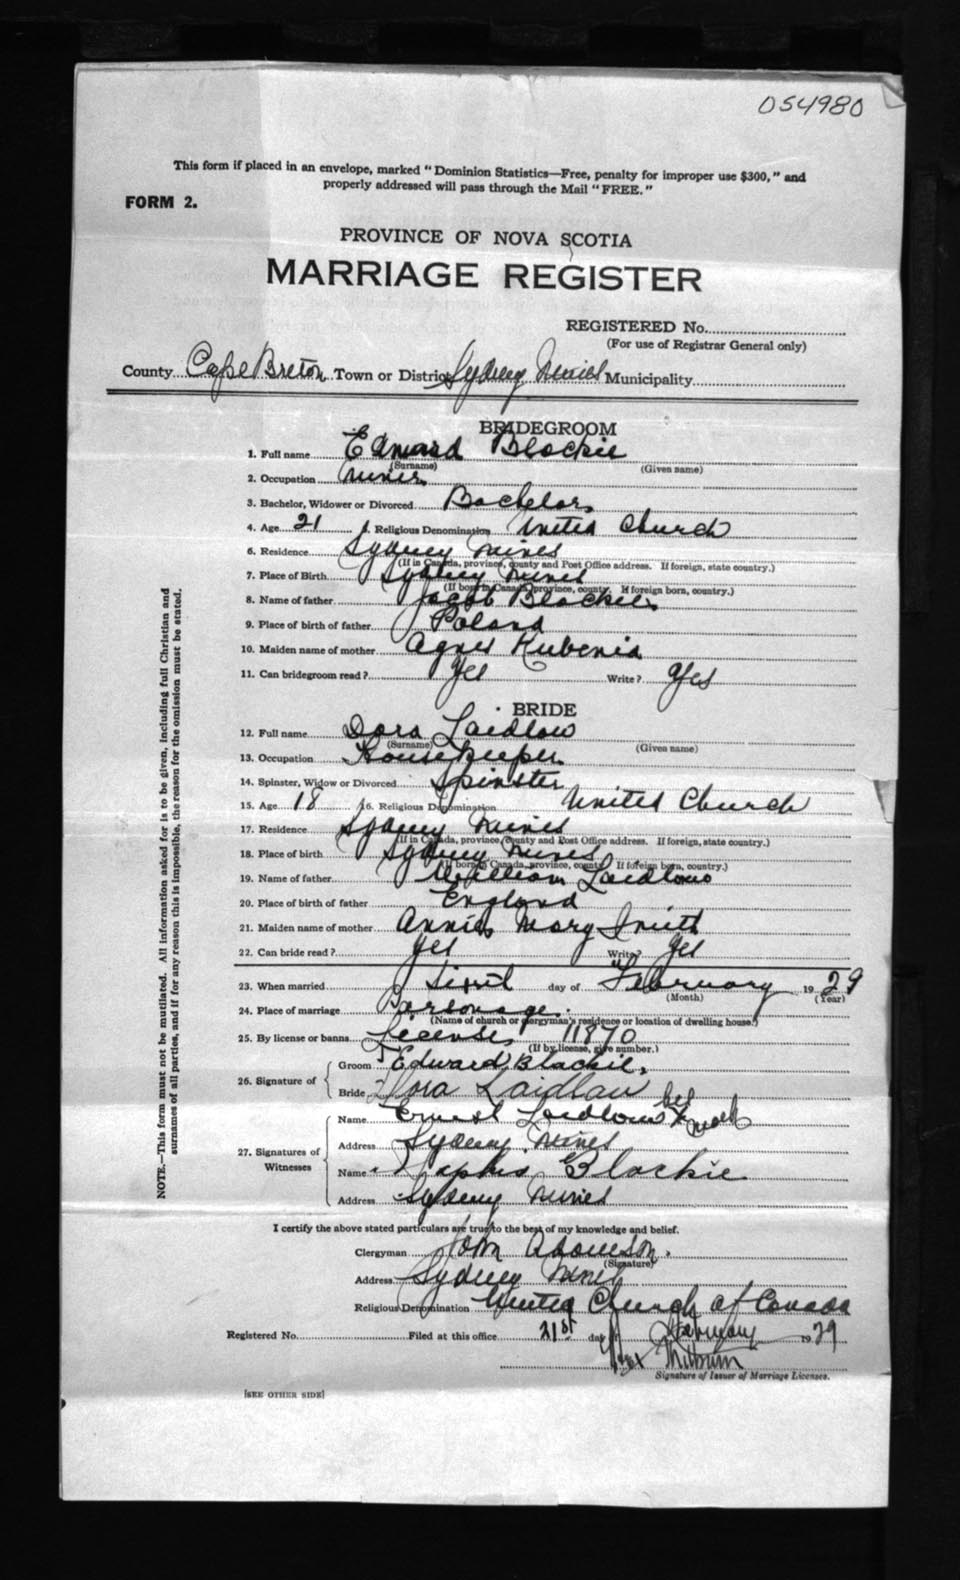 054980
This form if placed in an envelope, marked "Dominion Statistics—Free, penalty for improper use $300," and
properly addressed will pass through the Mail "FREE."
FORM 2.
PROVINCE OF NOVA SCOTIA
MARRIAGE REGISTER
REGISTERED No.
(For use of Registrar General only)
County Cape Breton Town or District Sydney Mines Municipality
BRIDEGROOM
1. Full name Edward Blackie
(Surname) (Given name)
2. Occupation Miner
3. Bachelor, Widower or Divorced Bachelor
4. Age 21 5. Religious Denomination United Church
6. Residence Sydney Mines
(If in Canada, province, county and Post Office address. If foreign, state country.)
7. Place of Birth Sydney Mines
(If born in Canada, province, county. If foreign born, country.)
8. Name of father Jacob Blackie
9. Place of birth of father Poland
10. Maiden name of mother Agnes
11. Can bridegroom read? Yes Write? Yes
BRIDE
12. Full name Dora Laidlow
(Surname) (Given name)
13. Occupation Housekeeper
14. Spinster, Widow or Divorced Spinster
15. Age 18 16. Religious Denomination United Church
17. Residence Sydney Mines
(If in Canada, province, county and Post Office address. If foreign, state country.)
18. Place of birth Sydney Mines
(If born in Canada, province, county. If foreign born, country.)
19. Name of father William Laidlow
20. Place of birth of father England
21. Maiden name of mother Annie Mary Smith
22. Can bride read? Yes Write? Yes
23. When married day of February 1929
(Month) (Year)
24. Place of marriage Parsonage
(Name of church or clergyman's residence or location of dwelling house.)
25. By license or banns License 11870
(If by license, give number.)
26. Signature of
Groom Edward Blackie
Bride Dora Laidlaw
27. Signatures of Witnesses
Name Ernest Laidlow X mark
Address Sydney Mines
Name Blackie
Address Sydney Mines
I certify the above stated particulars are true to the best of my knowledge and belief.
Clergyman John Adamson
(Signature)
Address Sydney Mines
Religious Denomination United Church of Canada
Registered No. Filed at this office 21st day of February 1929
Signature of Issuer of Marriage Licenses.
[SEE OTHER SIDE]
NOTE.—This form must not be mutilated. All information asked for is to be given, including full Christian and
surnames of all parties, and if for any reason this is impossible, the reason for the omission must be stated.